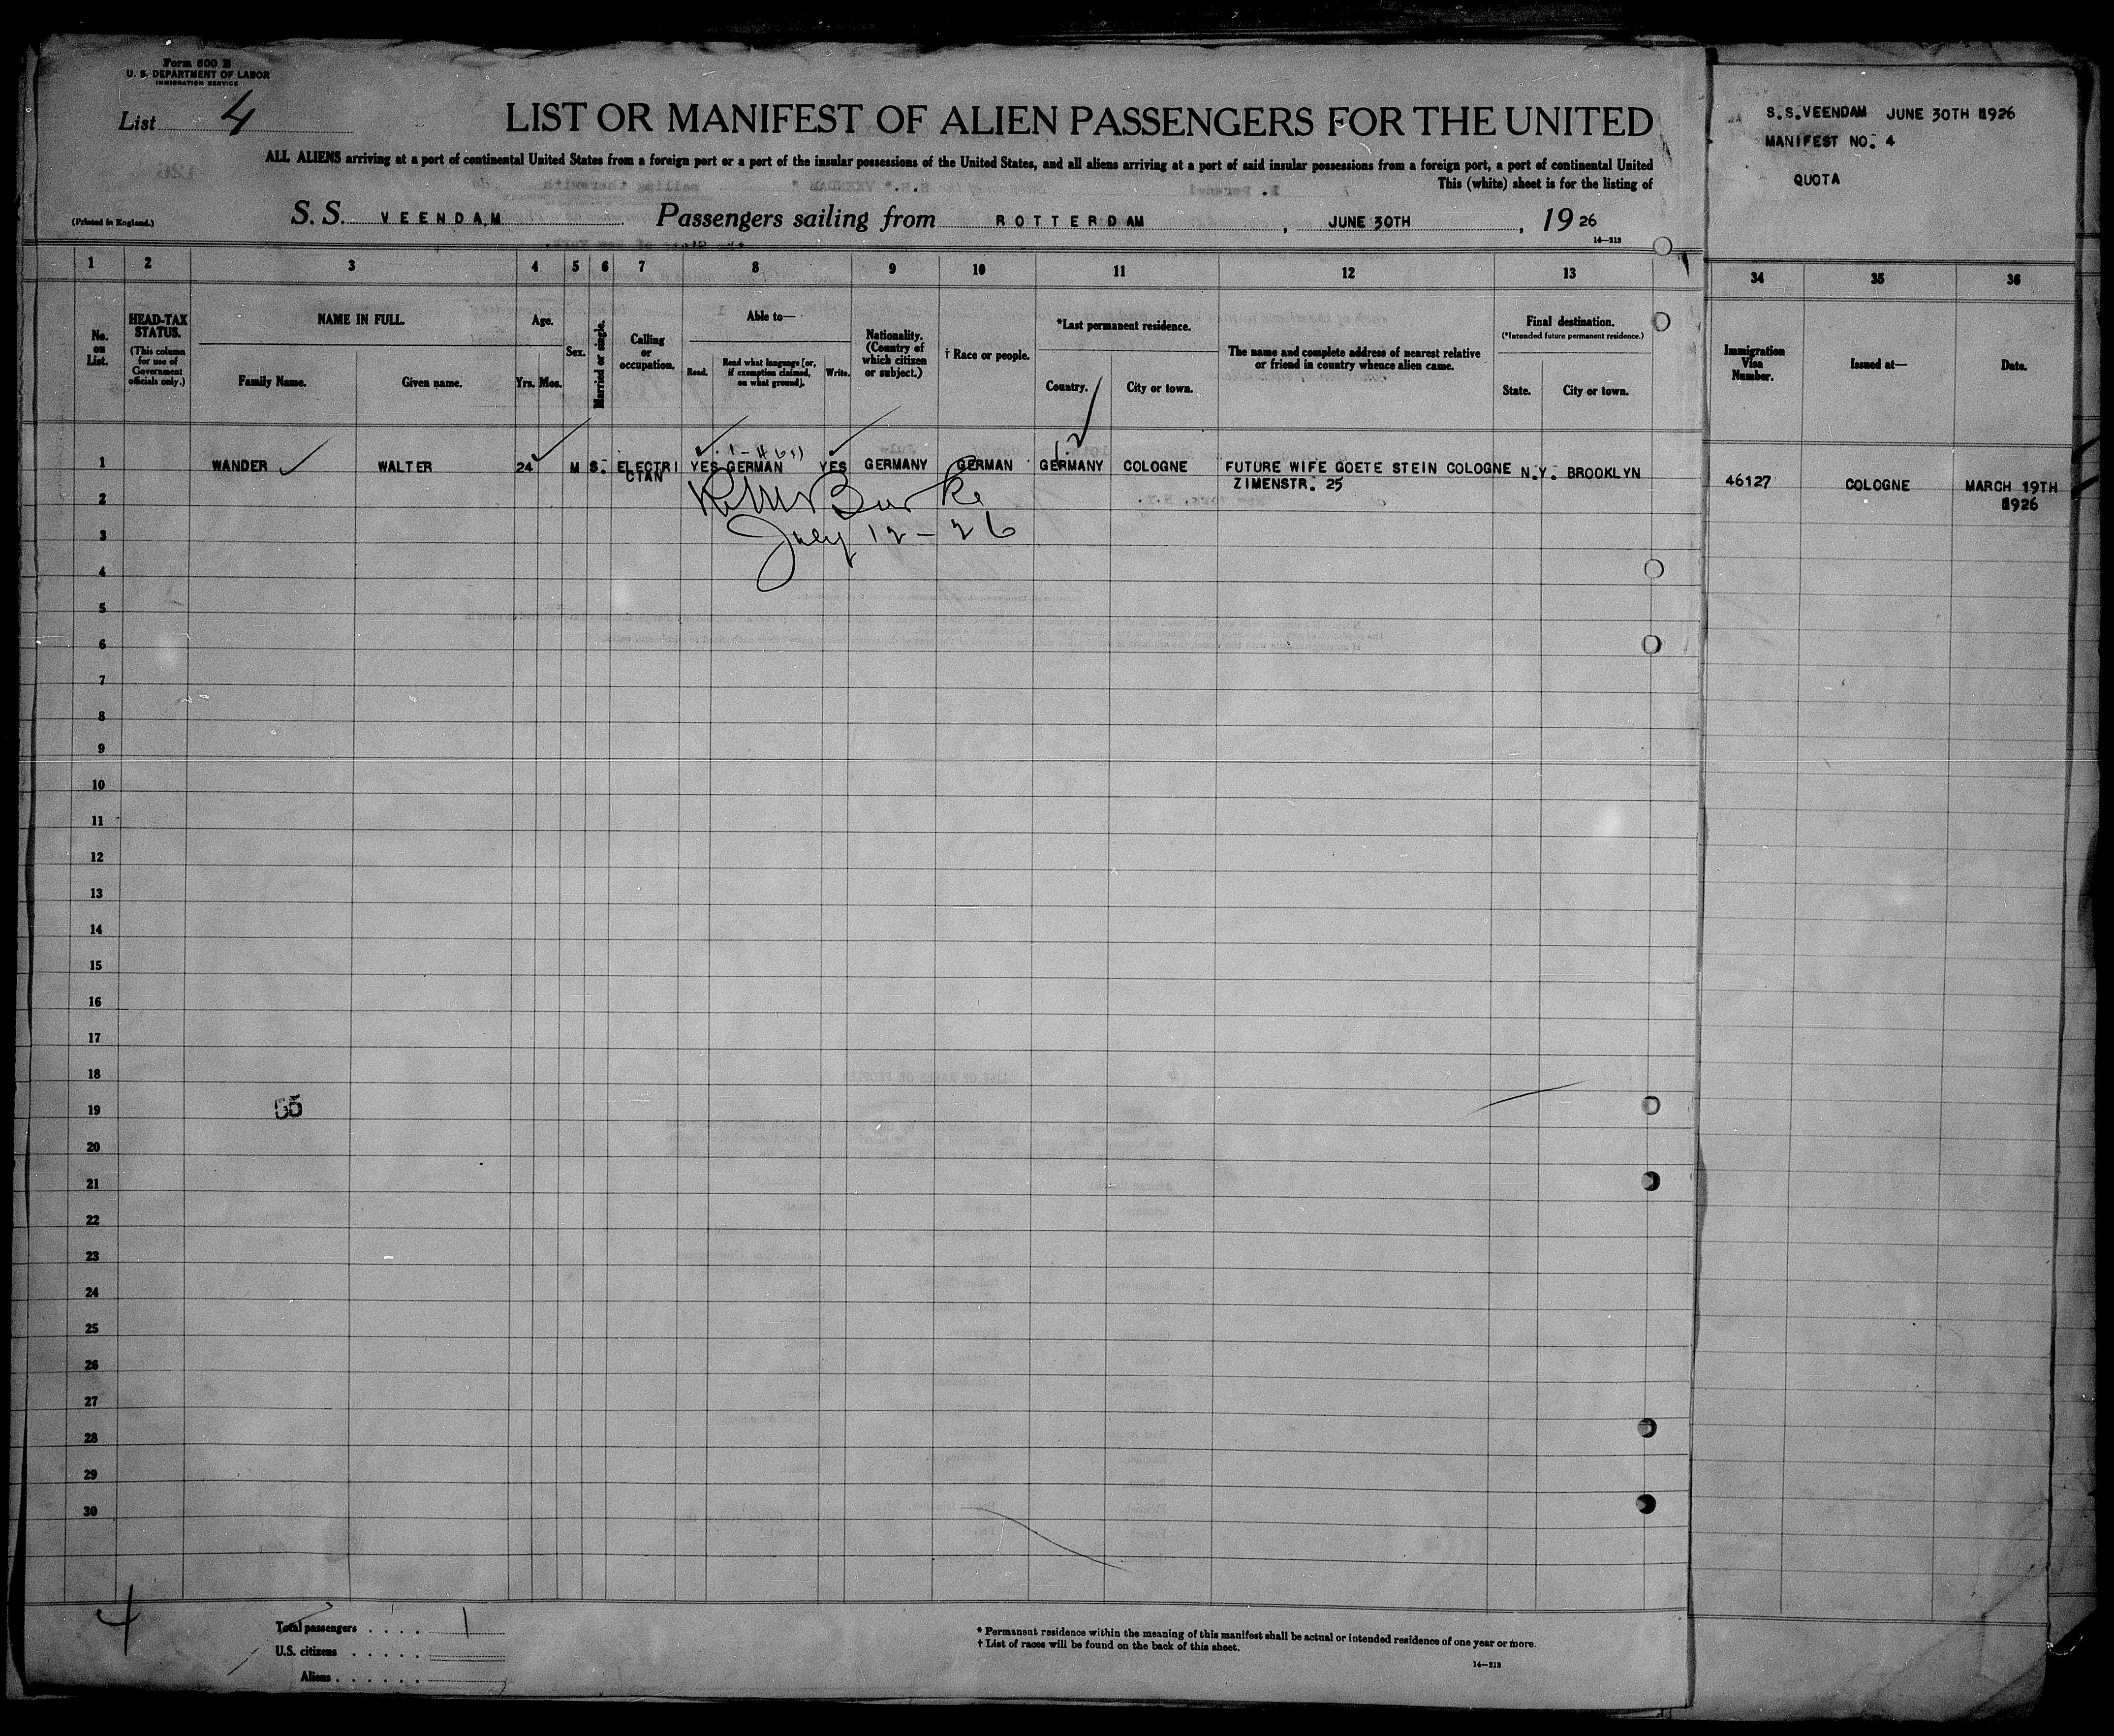 Form 500 B
U. S. DEPARTMENT OF LABOR
IMMIGRATION SERVICE
List 4
LIST OR MANIFEST OF ALIEN PASSENGERS FOR THE UNITED
ALL ALIENS arriving at a port of continental United States from a foreign port or a port of the insular possessions of the United States, and all aliens arriving at a port of said insular possessions from a foreign port, a port of continental United
This (white) sheet is for the listing of
(Printed in England.)
S. S. VEENDAM Passengers sailing from ROTTERDAM, JUNE 30TH, 19 26
14—213
S.S.VEENDAM JUNE 30TH 1926
MANIFEST NO. 4
QUOTA
1 2 3 4 5 6 7 8 9 10 11 12 13 34 35 36
No. on List.
HEAD-TAX STATUS.
(This column for use of Government officials only.)
NAME IN FULL.
Family Name. Given name.
Age.
Yrs. Mos.
Sex.
Married or single.
Calling or occupation.
Able to—
Read. Read what language [or, if exemption claimed, on what ground]. Write.
Nationality. (Country of which citizen or subject.)
† Race or people.
*Last permanent residence.
Country. City or town.
The name and complete address of nearest relative or friend in country whence alien came.
Final destination.
(*Intended future permanent residence.)
State. City or town.
Immigration Visa Number.
Issued at—
Date.
1 WANDER WALTER 24 M S. ELECTRI YES GERMAN YES GERMANY GERMAN GERMANY COLOGNE FUTURE WIFE GOETE STEIN COLOGNE N.Y. BROOKLYN
CIAN ZIMENSTR. 25
46127 COLOGNE MARCH 19TH
1926
2
Burke
3
July 12 - 26
4
5
6
7
8
9
10
11
12
13
14
15
16
17
18
19 55
20
21
22
23
24
25
26
27
28
29
30
4
Total passengers . . . . 1
U.S. citizens . . . . .
Aliens . . . . . .
* Permanent residence within the meaning of this manifest shall be actual or intended residence of one year or more.
† List of races will be found on the back of this sheet.
14—213